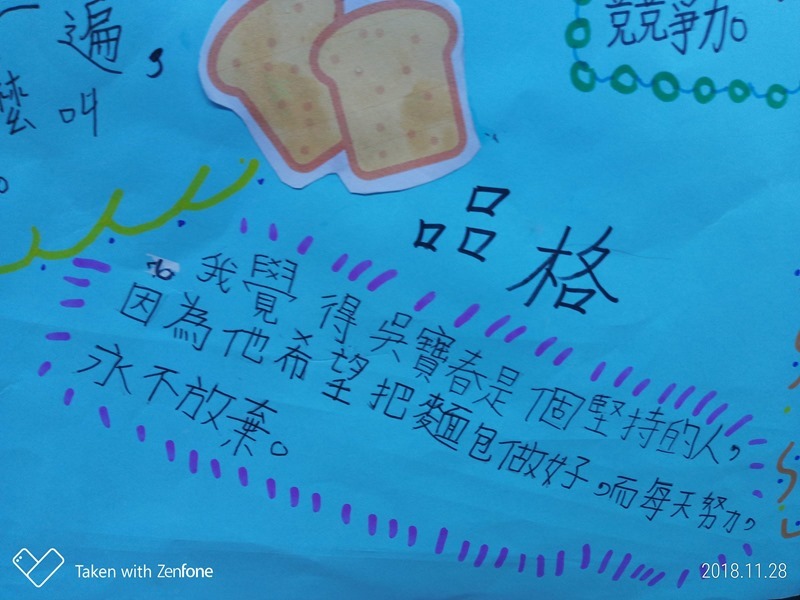 一遍，
麼叫
。
競爭力。
品格
我覺得吳寶春是個堅持的人，
因為他希望把麵包做好，而每天努力，
永不放棄。
Taken with Zenfone
2018.11.28